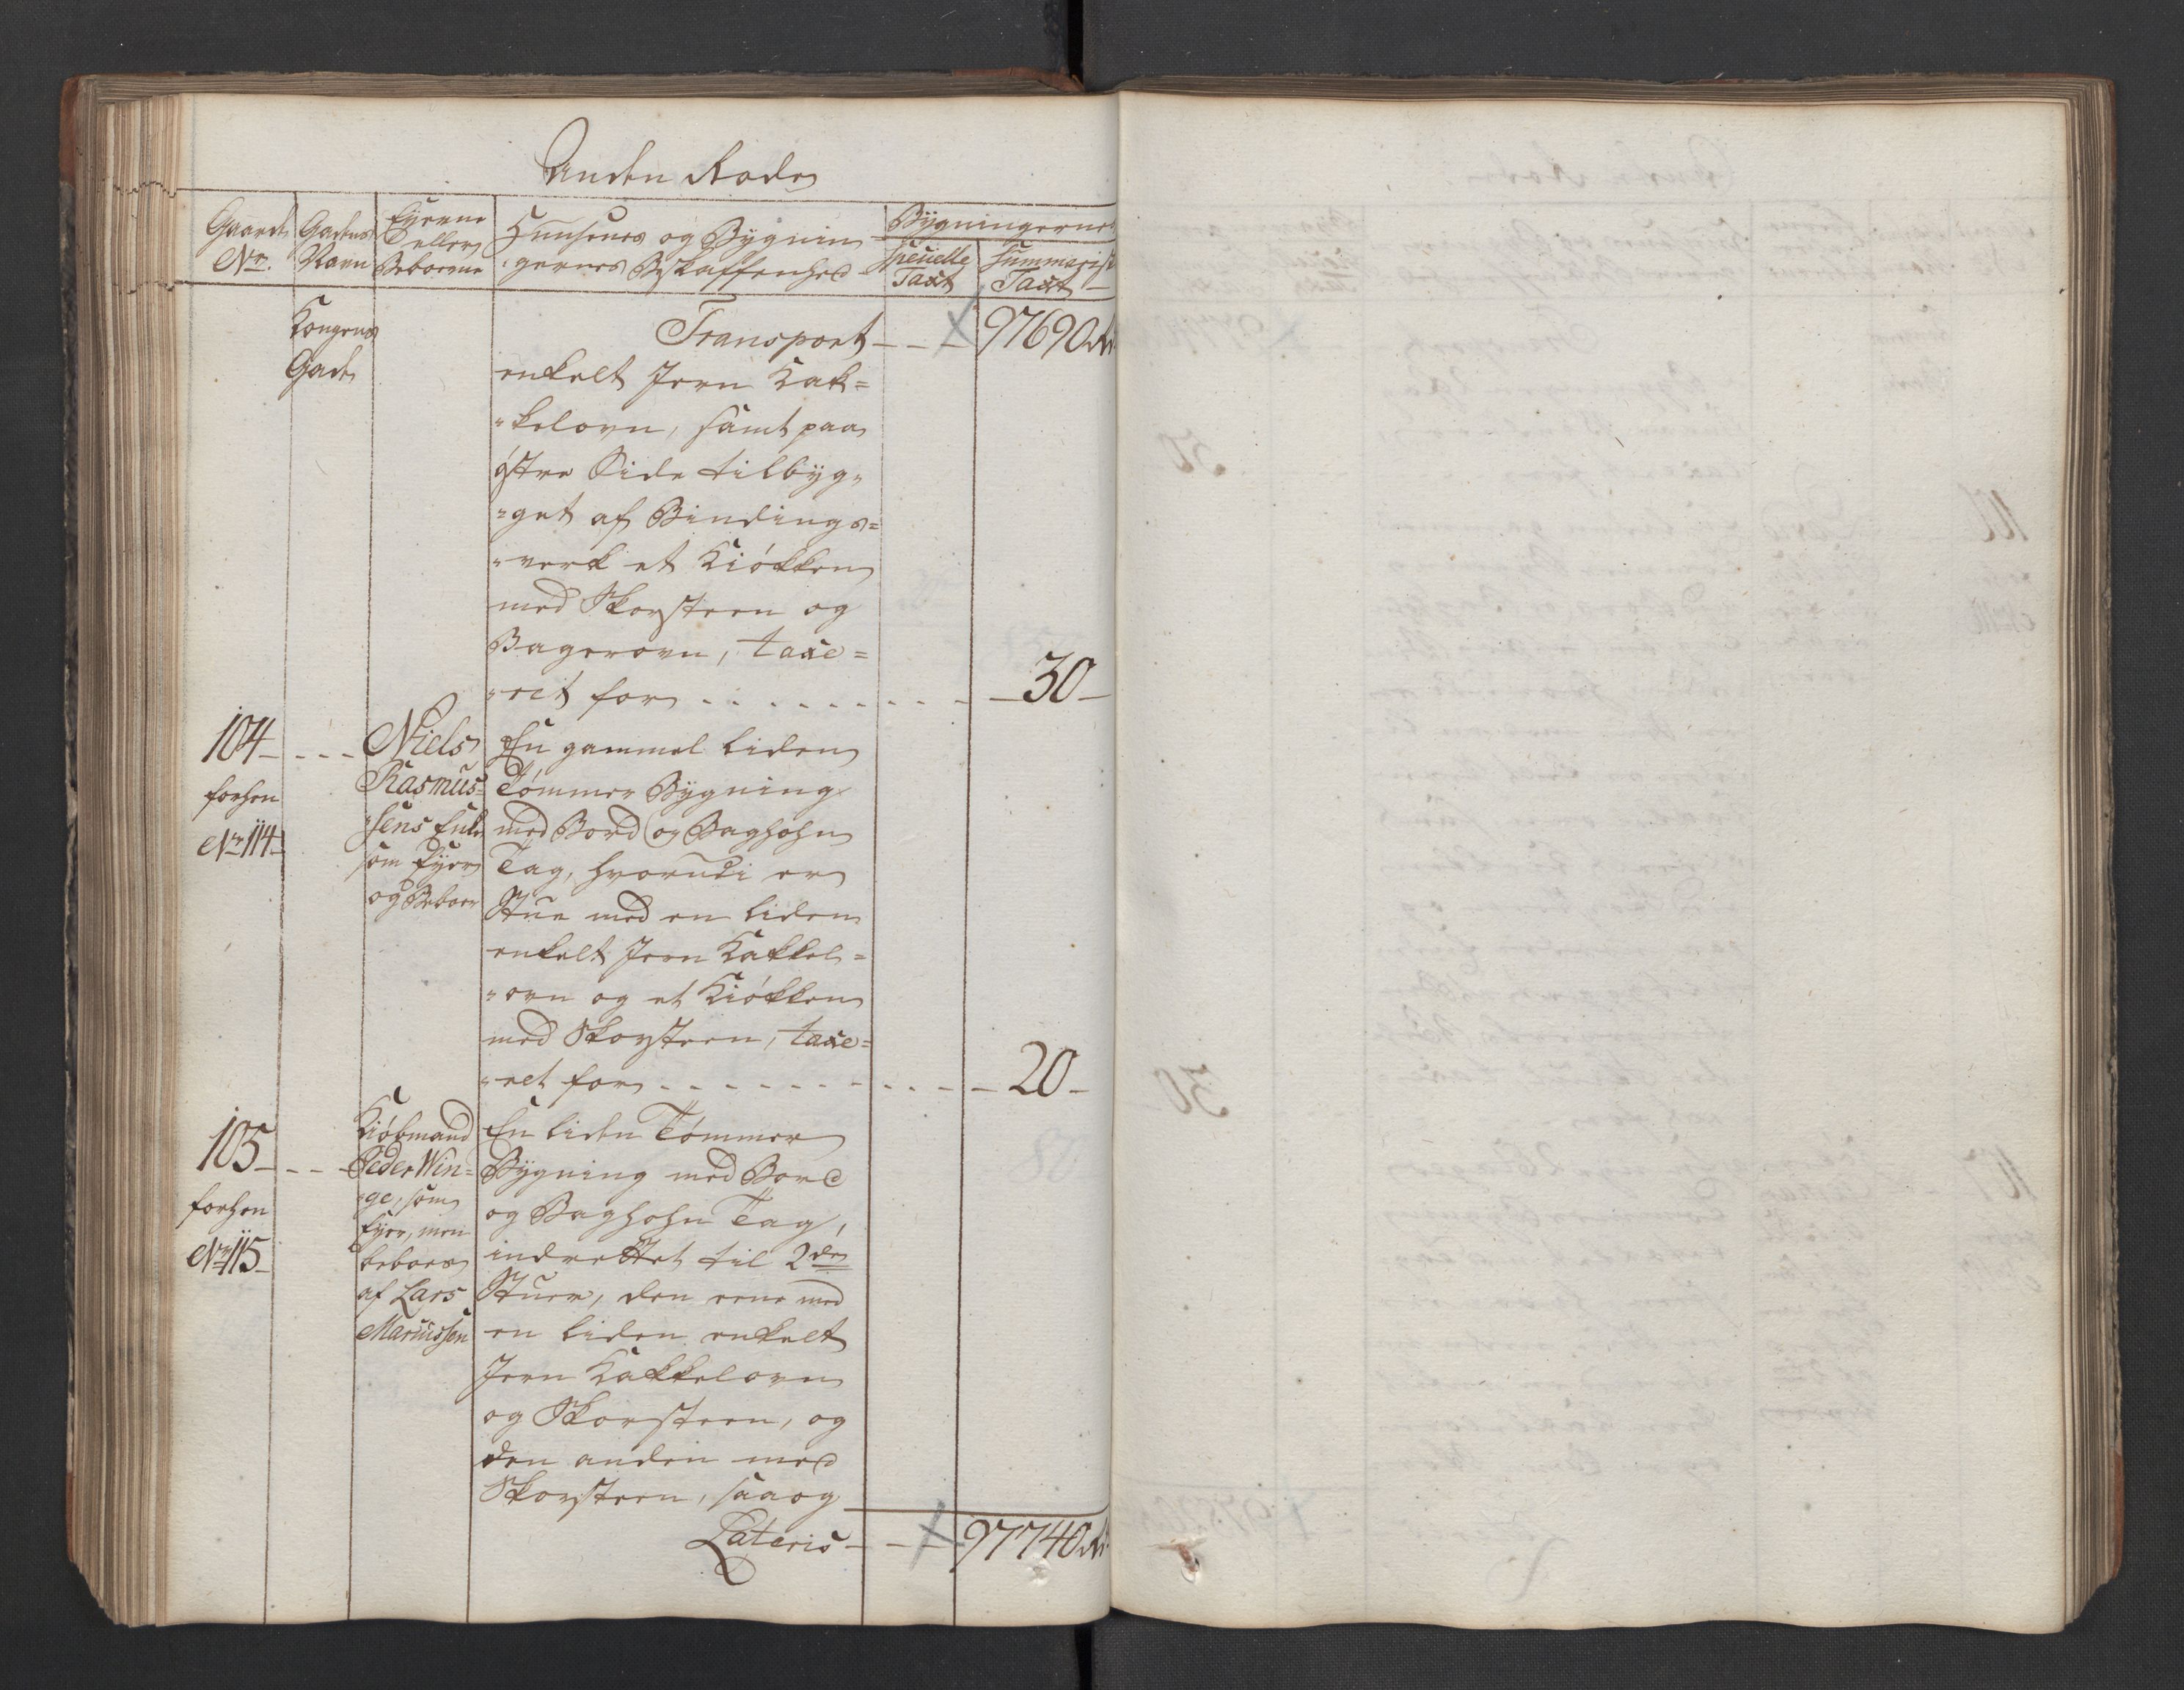 Anden Rode
Gaards No. | Gadens Navn | Eyerne eller Beboerne | Huusenes og Bÿgnin gernes Beskaffenhed | Bÿgningernes speuelle Taxt | summarisk Taxt
Kongens Gade
Transport - - - 97690 Rd
enkelt Jern Kak=
"kelovn, samt paa
östre Side tilbÿg"
"get af Bindings=
"verk et Kiökken
med Skorsteen og
Bagerovn, taxe=
"ret for . . . . . . . . . - 30 -
104 - - -
forhen
No 114
Niels
Rasmus=
"sens Enke
som Eÿer
og Beboer
En gammel liden
Tömmer Bÿgning
med Bord og Baghohn
Tag, hvorudi er
Stue med en liden
enkelt Jern Kakkel=
"ovn og et Kiökken
med Skorsteen, taxe=
"ret for - - - - - - - - - - 20 -
105 - - -
forhen
No 115
Kiöbmand
Peder Win=
"ge, som
Eÿer, men
beboes
af Lars
Mariussen
En liden Tömmer
Bÿgning med Bord
og Baghohn Tag,
indrettet til 2de
Stuer, den eene med
en liden enkelt
Jern Kakkelovn
og Skorsteen, og
den anden med
Skorsteen, saa og
Lateris - - - 97740 Rd